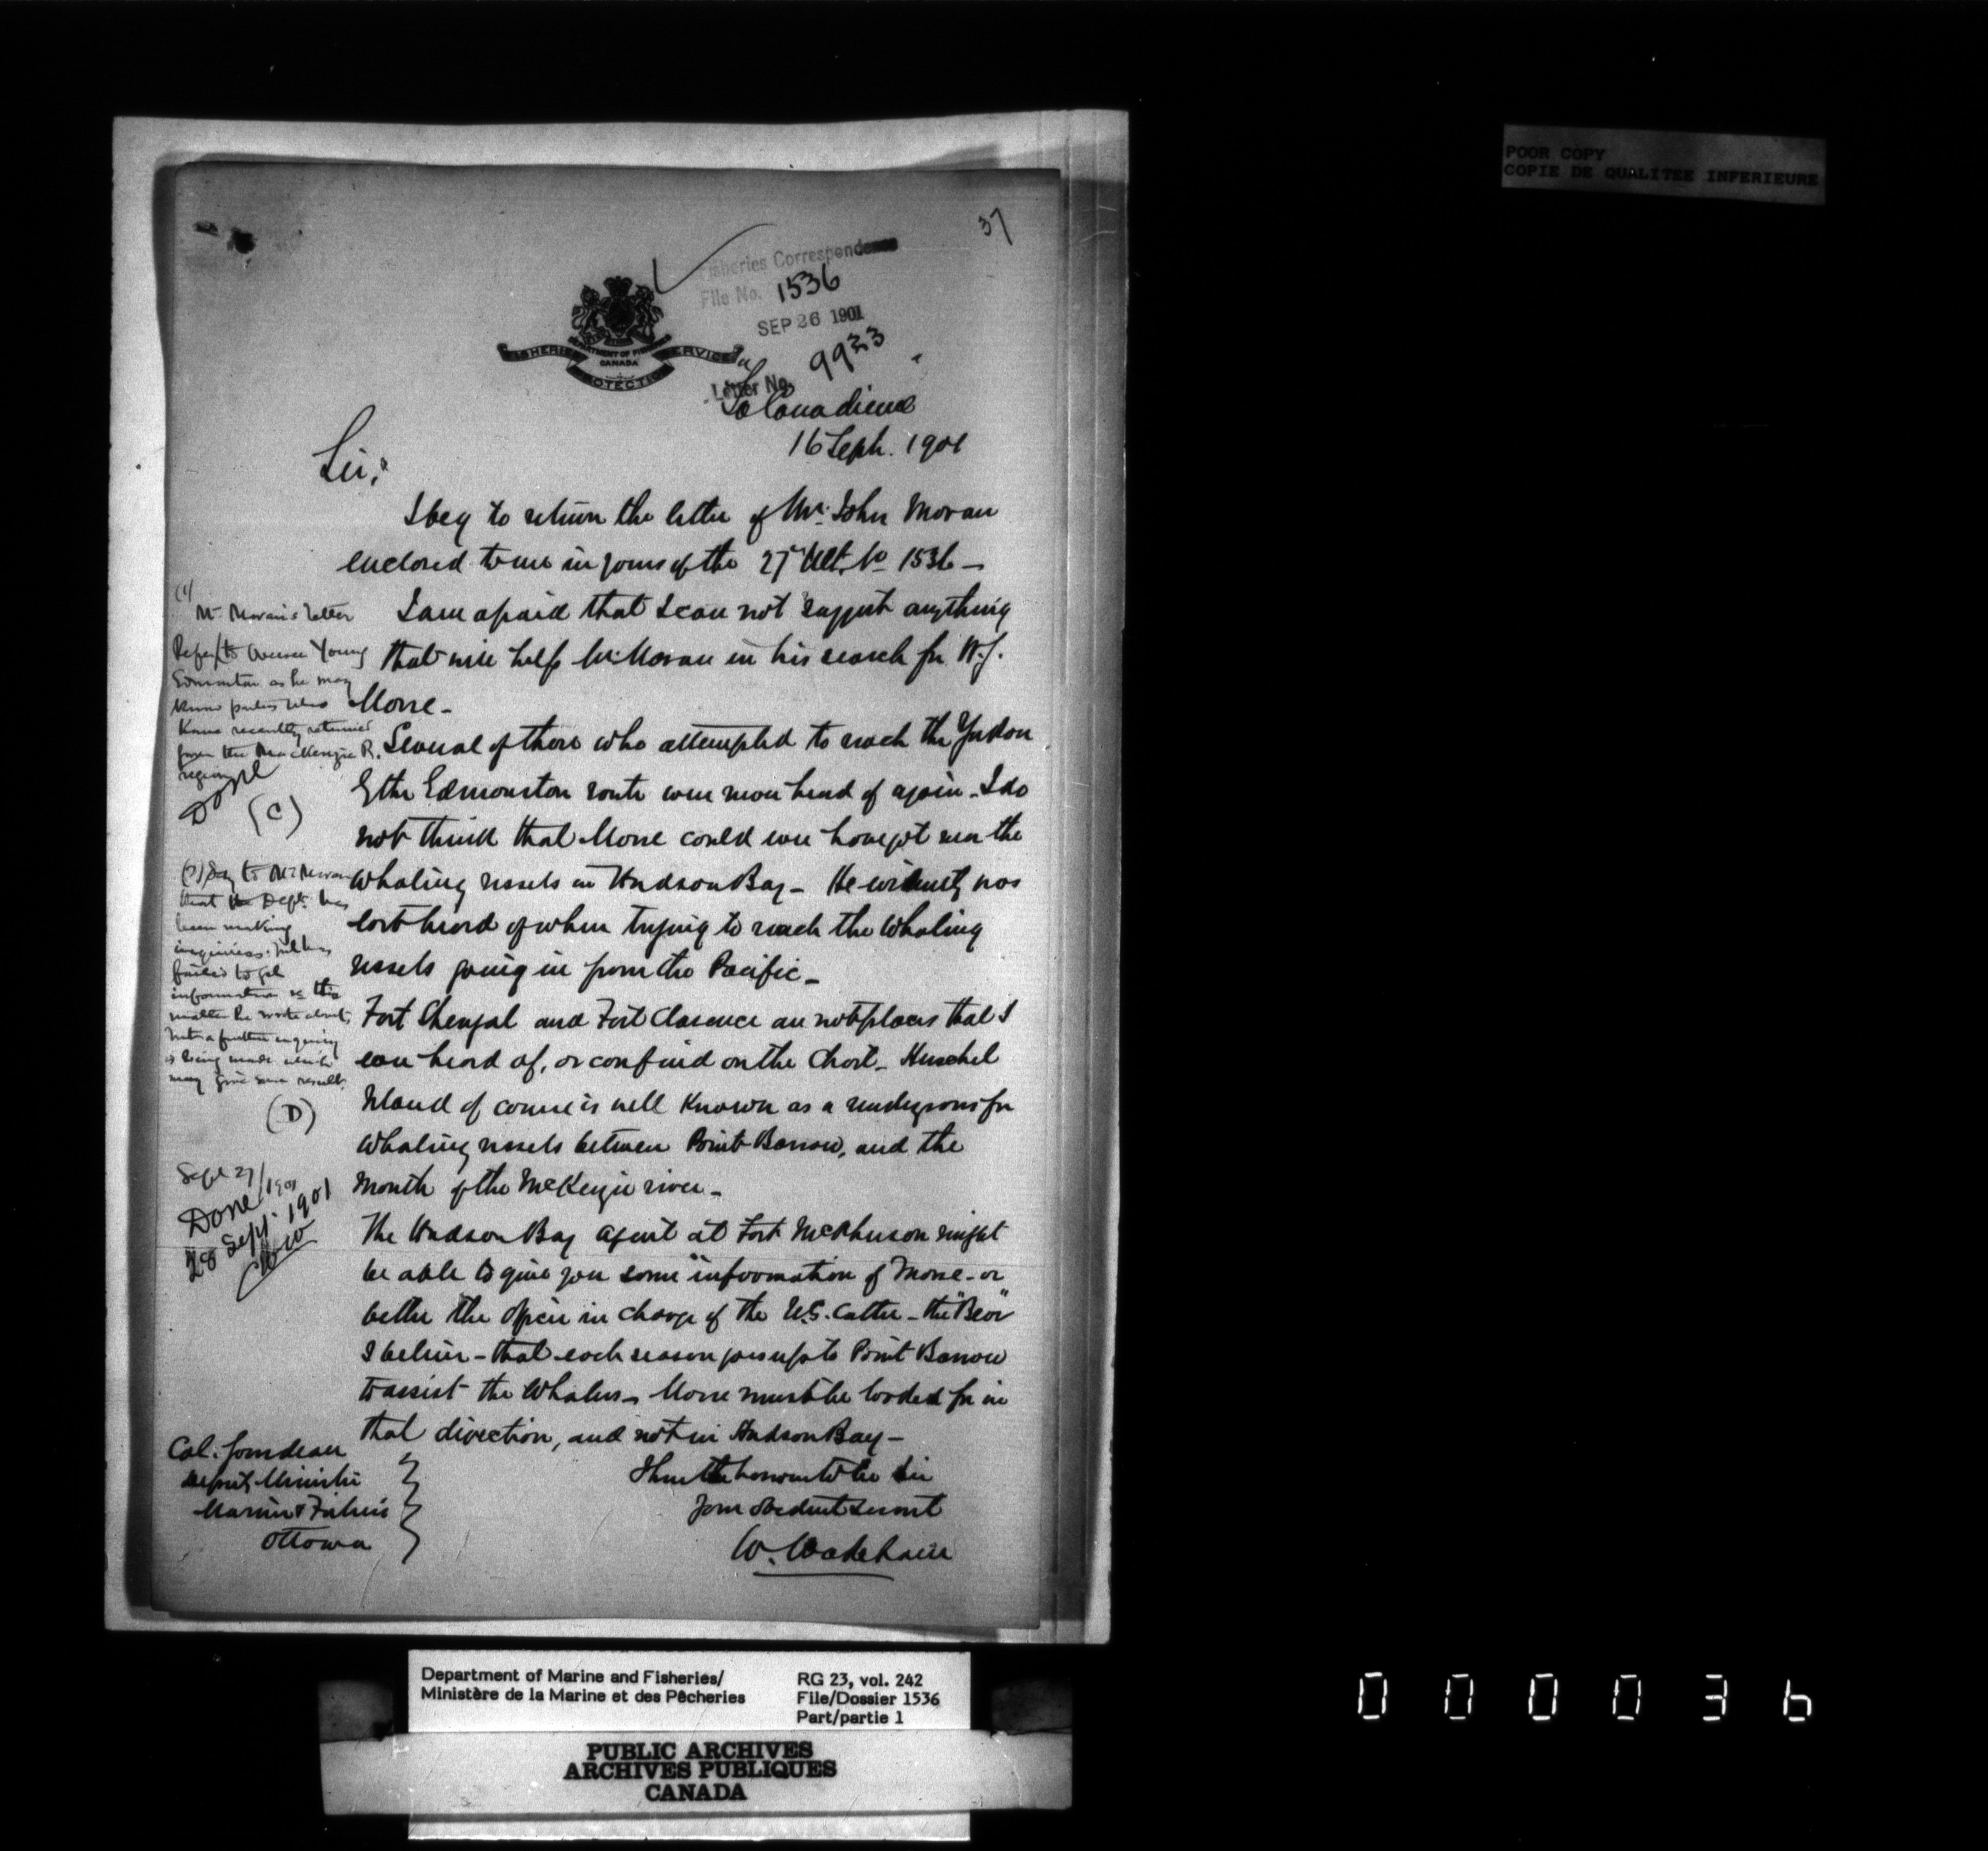 POOR COPY
COPIE DE QUALITEE INFERIEURE
37
Fisheries Correspondence
File No. 1536
SEP 26 1901
Letter No. 9933
FISHERIES PROTECTION SERVICE
DEPARTMENT OF FISHERIES
CANADA
La Canadienne
16 Sept. 1901
Sir,
I beg to return the letter of Mr. John Moran
enclosed to me in yours of the 27th Ult. No 1536 —
I am afraid that I can not suggest anything
that will help Mr. Moran in his search for W.J.
Morse —
Several of those who attempted to reach the Yukon
by the Edmonton route were never heard of again. I do
not think that Morse could ever have got near the
Whaling vessels in Hudson Bay — He evidently was
last heard of when trying to reach the Whaling
vessels going in from the Pacific —
Fort Shengal and Fort Clarence are not places that I
ever heard of, or can find on the Chart — Herschel
Island of course is well known as a rendezvous for
Whaling vessels between Point Barrow, and the
Mouth of the McKenzie river —
The Hudson Bay Agent at Fort McPherson might
be able to give you some information of Morse — or
better the Officer in charge of the U.S. Cutter — the "Bear"
I believe — that each season goes up to Point Barrow
to assist the Whalers — Morse must be looked for in
that direction, and not in Hudson Bay —
I have the honour to be Sir
Your obedient Servant
W. Wakeham
Col. Gourdeau
Deputy Minister
Marine & Fisheries
Ottawa
(1)
Mr Moran's letter
Refer to Young
Edmonton as he may
know parties who
have recently returned
from the MacKenzie R.
region
Done
(C)
(2) Say to Mr Moran
that the Dept. has
been making
inquiries but has
failed to get
information in the
matter he wrote about,
but a further enquiry
is being made which
may give some result.
(D)
Sept 27/1901
Done
28 Sept. 1901
Department of Marine and Fisheries/
Ministère de la Marine et des Pêcheries
RG 23, vol. 242
File/Dossier 1536
Part/partie 1
PUBLIC ARCHIVES
ARCHIVES PUBLIQUES
CANADA
000036